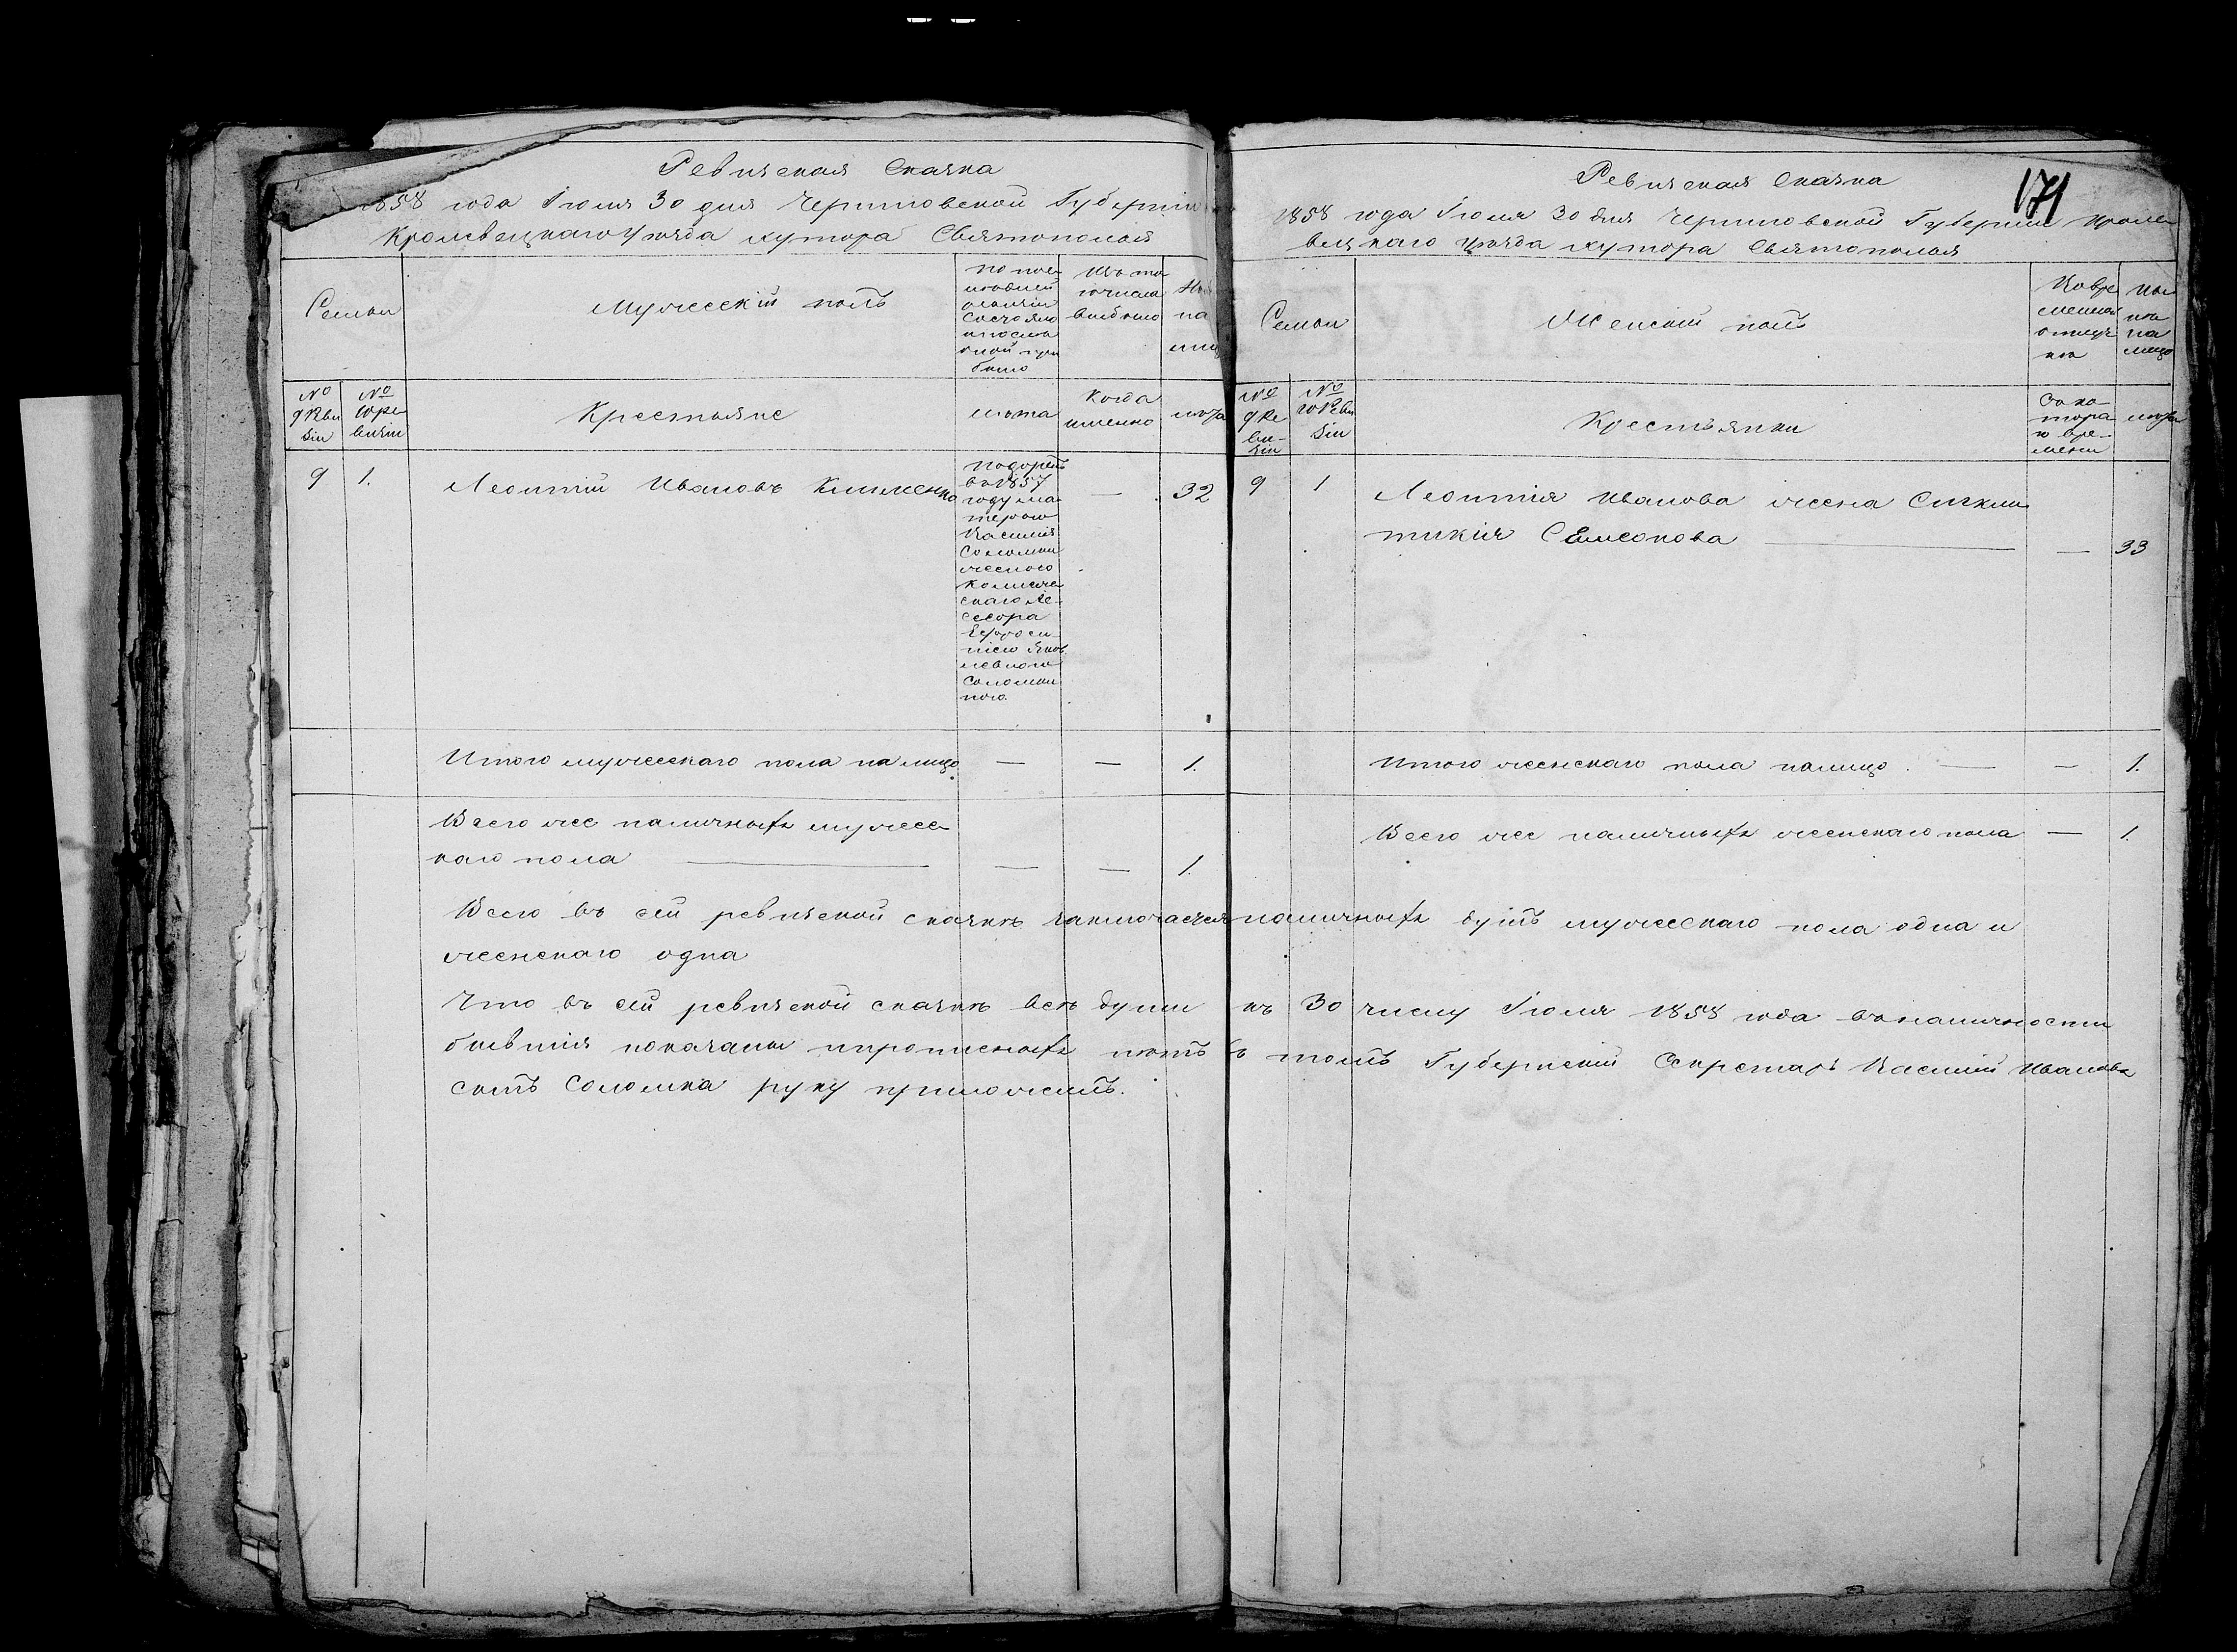 Ревизская Сказка
1858 года Іюля 30 дня Черниговской Губерніи
Кролевецкаго уѣзда хутора Святополья
Семьи
Мужескій полъ
По пос
лѣдней
ревизіи
состояло
и послѣ
оной при
было
Изъ то
го числа
выбыло
на
лицо
№
9 Реви
зіи
№
10 ре
визіи
Крестьяне
лѣта
Когда
именно
лѣта
9 1. Леонтій Ивановъ Клименко — 32
Подаренъ
въ 1857
году ма
терью
Василія
Соломки
женою
Коллежс
скаго Ас-
сесора
Ефроси
ніею Яков
левною
Соломки
ною.
Итого мужескаго пола на лицо — — 1.
Всего же наличныхъ мужес
каго пола — — — 1.
Ревизская Сказка
171
1858 года Іюля 30 дня Черниговской Губерніи Кроле
вецкаго уѣзда хутора Святополья
Семьи
Женскій полъ
Во вре
менной
отлуч
кѣ
на
лицо
№
9 Ре
ви-
зіи
№
10 Реви
зіи
Крестьянки
Съ ко
тора
го вре-
мени
лѣта
9 1 Леонтія Иванова жена Сикли
тикія Семсонова — — 33
Итого женскаго пола налицо — — 1.
Всего же наличныхъ женскаго пола — 1.
Всего въ сей ревизской сказкѣ заключается наличныхъ душъ мужескаго пола одна и
женскаго одна
Что въ сей ревизской сказкѣ всѣ души къ 30 числу Іюля 1858 года въ наличности
бывшія показаны и прописныхъ нѣтъ въ томъ Губернскій Секретарь Василій Ивановъ
сынъ Соломка руку приложилъ.